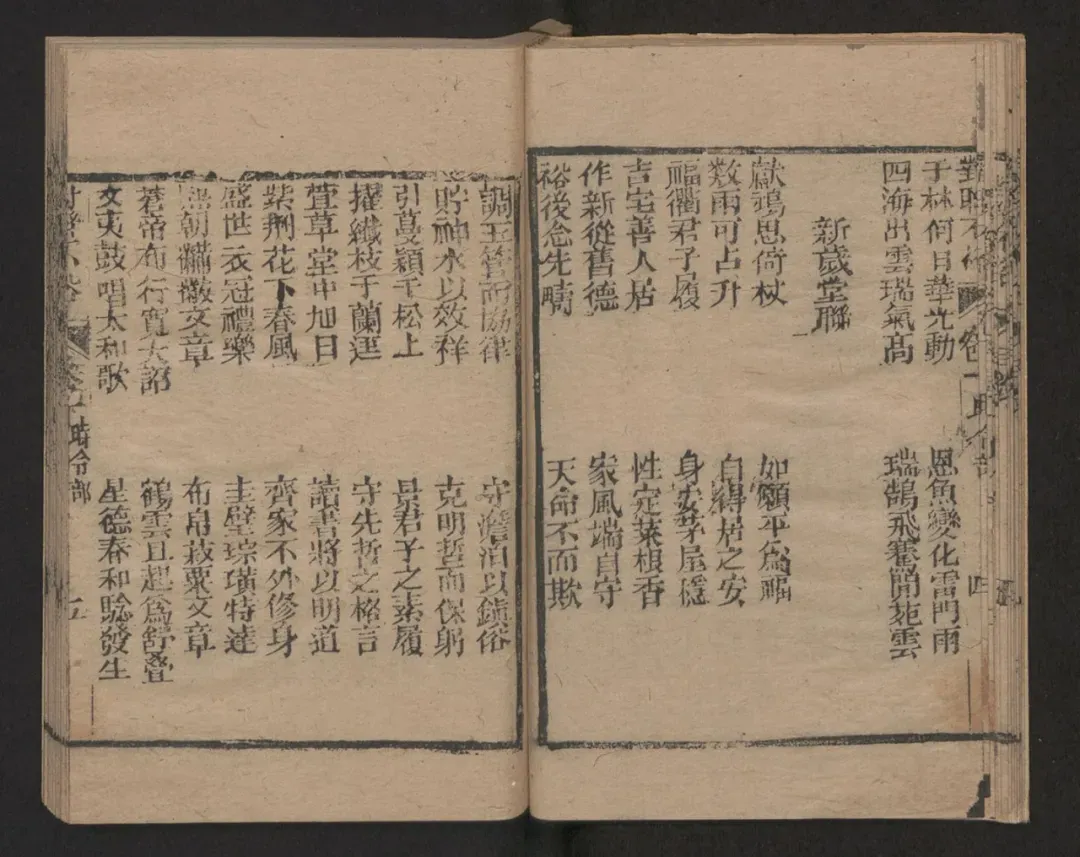 對聯不俗 卷一 時令部 四
于林何日華光動 恩魚變化雷門雨
四海出雲瑞氣高 瑞鵠飛騫閬苑雲
新歲堂聯
獻鳩思倚杖 如願平為福
數雨可占升 自得居之安
福衢君子履 身安茅屋穩
吉宅善人居 性定菜根香
作新從舊德 家風端自守
裕後念先疇 天命不而欺
調玉管而協律 守澹泊以鎮俗
貯神水以效祥 克明哲而保躬
引蔓穎于松上 景君子之素履
擢纖枝于蘭逕 守先哲之格言
萱草堂中旭日 讀書將以明道
紫荆花下春風 齊家不外修身
盛世衣冠禮樂 圭璧琮璜特達
熙朝黼黻文章 布帛菽粟文章
蒼帝布行寬大詔 鶴雲且起為舒疊
文夷鼓唱太和歌 星德春和騐發生
時令部 五